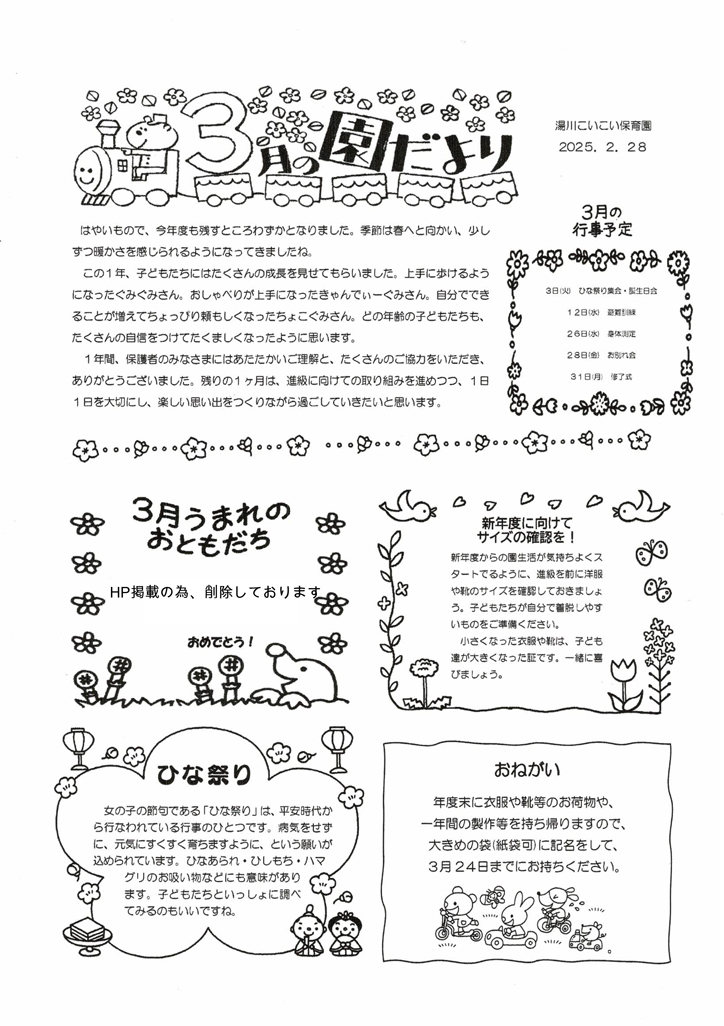 3月の園だより
湯川こいこい保育園
2025．2．28
はやいもので、今年度も残すところわずかとなりました。季節は春へと向かい、少し
ずつ暖かさを感じられるようになってきましたね。
この１年、子どもたちにはたくさんの成長を見せてもらいました。上手に歩けるよう
になったぐみぐみさん。おしゃべりが上手になったきゃんでぃーぐみさん。自分ででき
ることが増えてちょっぴり頼もしくなったちょこぐみさん。どの年齢の子どもたちも、
たくさんの自信をつけてたくましくなったように思います。
１年間、保護者のみなさまにはあたたかいご理解と、たくさんのご協力をいただき、
ありがとうございました。残りの１ヶ月は、進級に向けての取り組みを進めつつ、１日
１日を大切にし、楽しい思い出をつくりながら過ごしていきたいと思います。
3月の
行事予定
3日(火) ひな祭り集会・誕生日会
12日(水) 避難訓練
26日(水) 身体測定
28日(金) お別れ会
31日(月) 修了式
3月うまれの
おともだち
HP掲載の為、削除しております
おめでとう！
新年度に向けて
サイズの確認を！
新年度からの園生活が気持ちよくス
タートでるように、進級を前に洋服
や靴のサイズを確認しておきましょ
う。子どもたちが自分で着脱しやす
いものをご準備ください。
小さくなった衣服や靴は、子ども
達が大きくなった証です。一緒に喜
びましょう。
ひな祭り
女の子の節句である「ひな祭り」は、平安時代か
ら行なわれている行事のひとつです。病気をせず
に、元気にすくすく育ちますように、という願いが
込められています。ひなあられ・ひしもち・ハマ
グリのお吸い物などにも意味があり
ます。子どもたちといっしょに調べ
てみるのもいいですね。
おねがい
年度末に衣服や靴等のお荷物や、
一年間の製作等を持ち帰りますので、
大きめの袋(紙袋可)に記名をして、
３月２４日までにお持ちください。